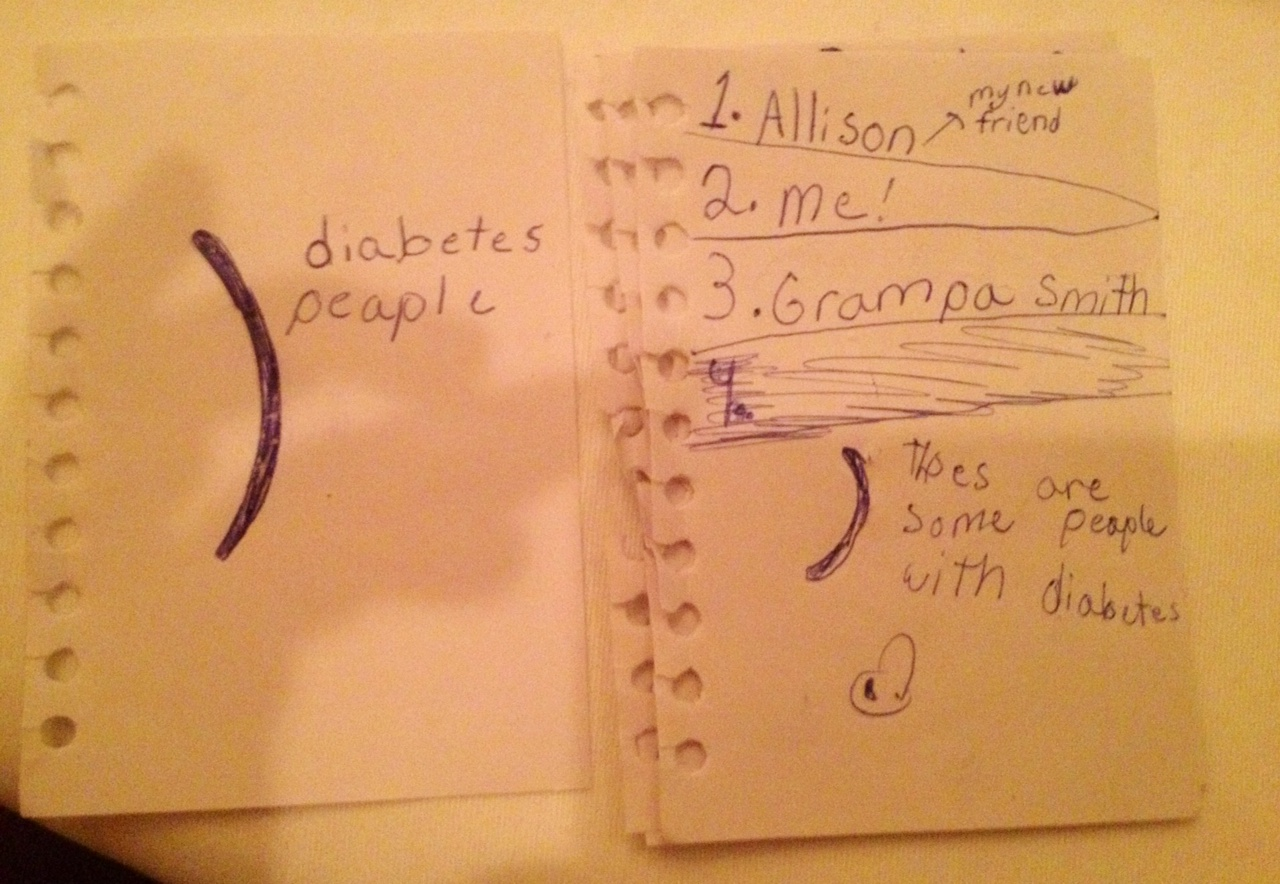 diabetes
peaple
1. Allison ↗ my new
friend
2. me!
3. Grampa Smith
4.
Thes are
some peaple
with diabetes